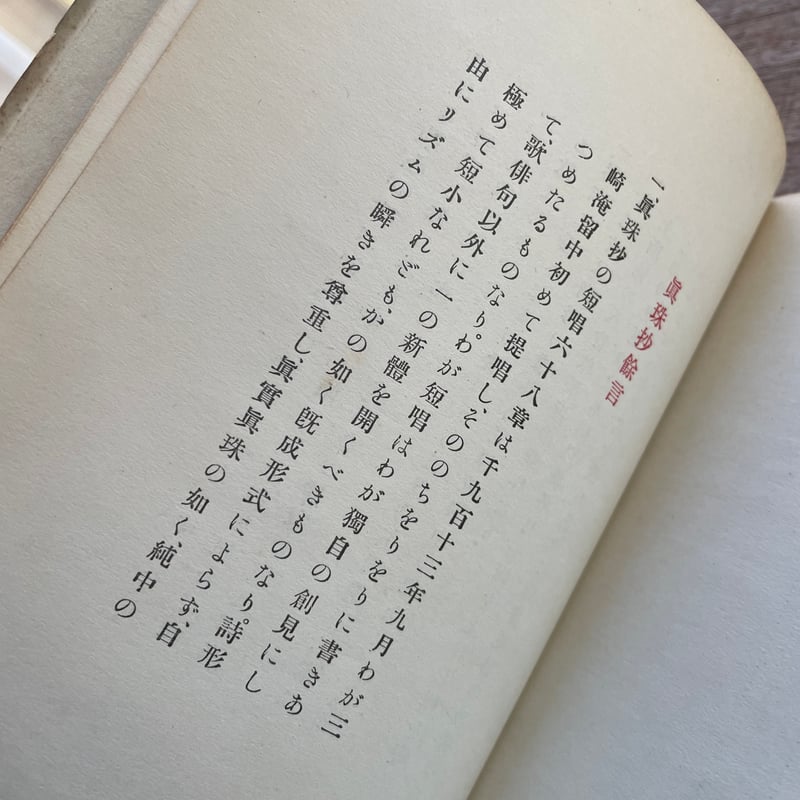 眞珠抄餘言
一、眞珠抄の短唱六十八章は千九百十三年九月わが三
崎淹留中初めて提唱し、そののちをりをりに書きあ
つめたるものなり。わが短唱はわが獨自の創見にし
て、歌俳句以外に一の新體を開くべきものなり。詩形
極めて短小なれども、かの如く旣成形式によらず、自
由にリズムの瞬きを尊重し、眞實眞珠の如く、純中の